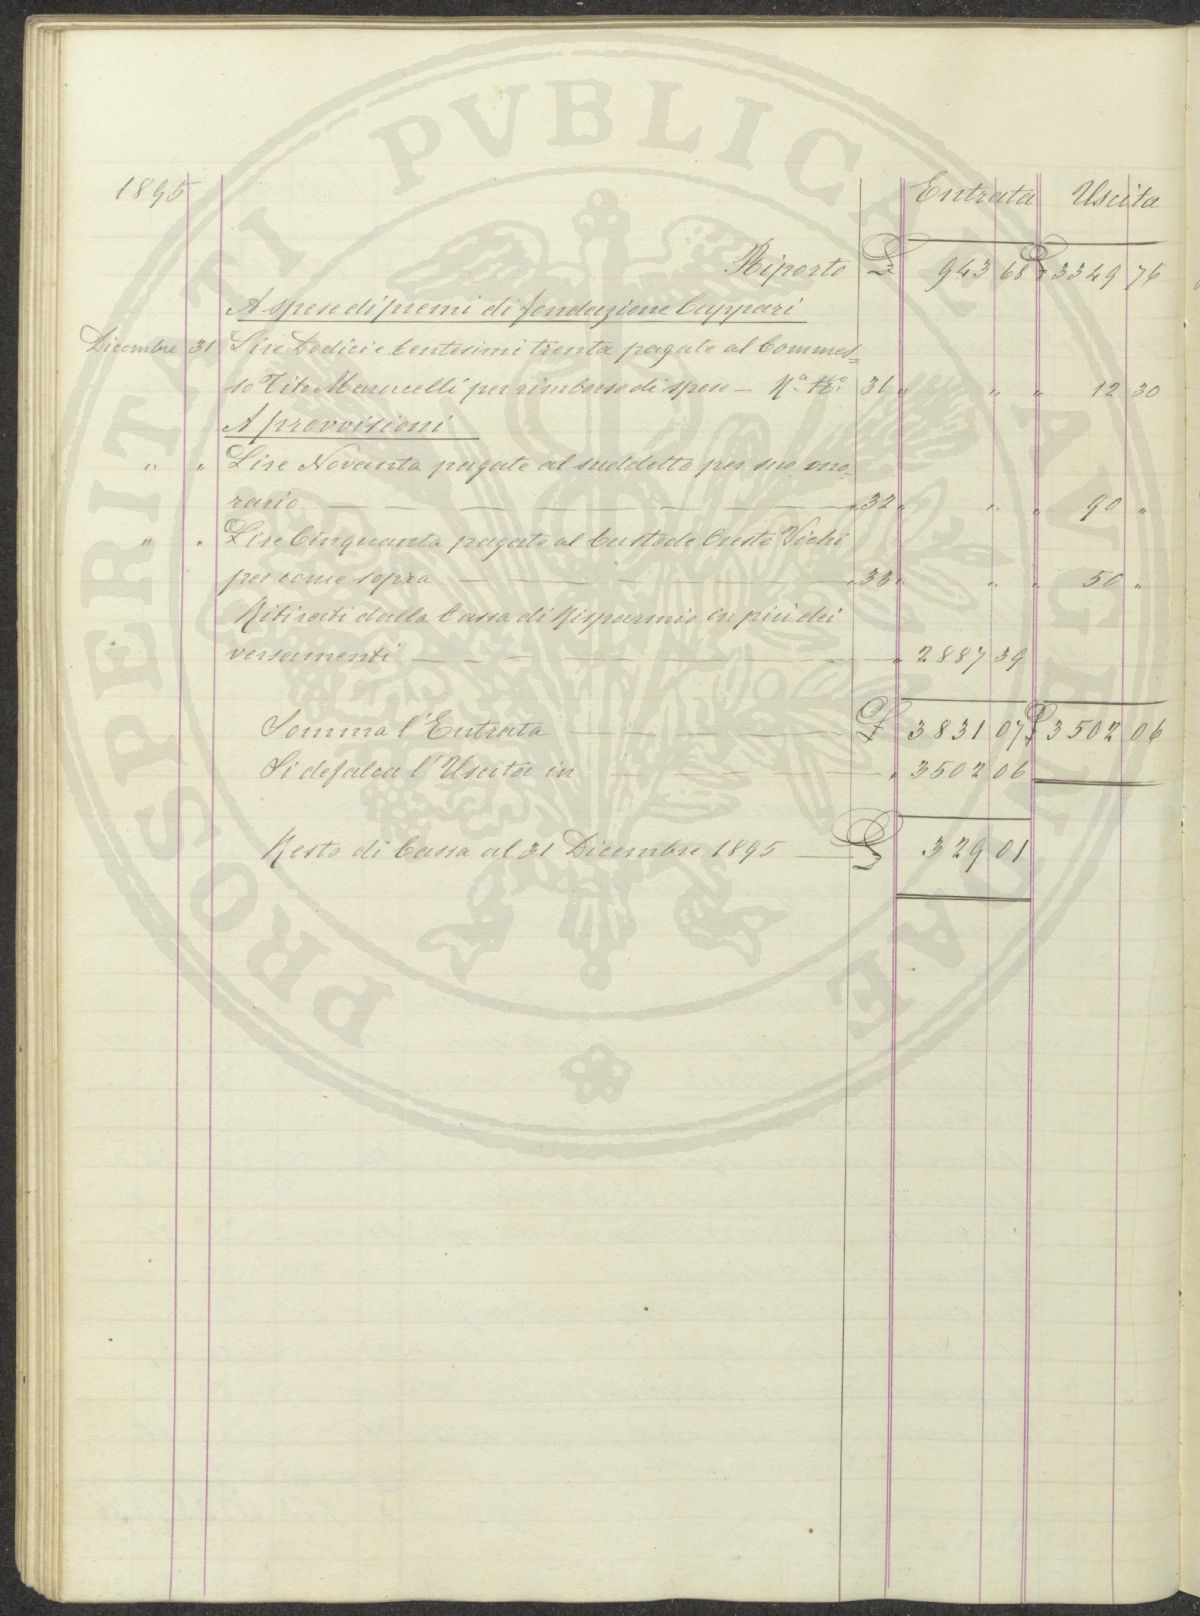 PROSPERITATI PVBLICAE AVGENDAE
1895 Entrata Uscita
Riporto £ 943 68 £ 3349 76
A spese di premi di fondazione Cuppari
Dicembre 31 Lire Dodici e Centesimi trenta pagate al Commes=
so Tito Marucelli per rimborso di spese — 31 „ „ „ 12 30
A provvisioni
„ „ Lire Novanta pagate al suddetto per suo ono=
rario — „ 32 „ „ „ 90 „
„ „ Lire Cinquanta pagate al Custode Oreste Vichi
per come sopra — „ 33 „ „ „ 50 „
Ritirati dalla Cassa di Risparmio in più dei
versamenti — „ 2887 39
Somma l'Entrata — £ 3831 07 £ 3502 06
Si defalca l'Uscita in — „ 3502 06
Resto di Cassa al 31 Dicembre 1895 — £ 329 01